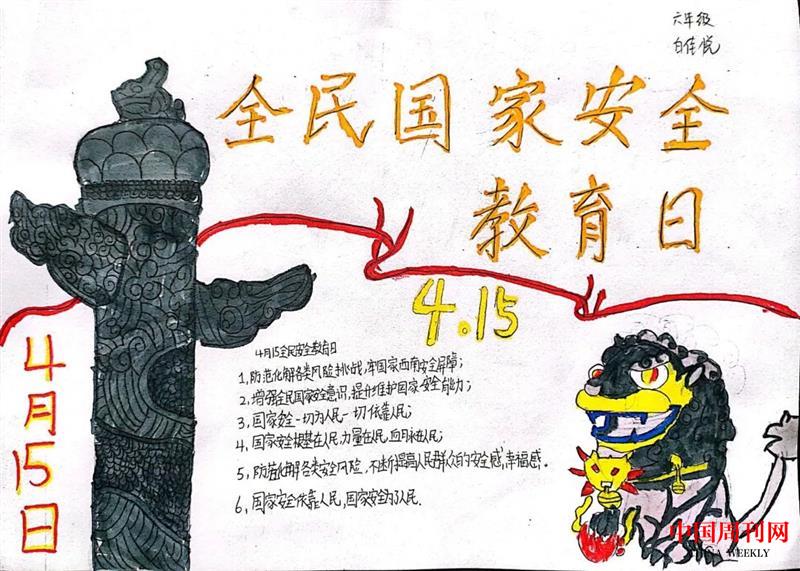 六年级
白佳悦
全民国家安全
教育日
4.15
4月15日
4月15全民安全教育日
1、防范化解各类风险挑战,牢国家西南安全屏障;
2、增强全民国家安全意识,提升维护国家安全能力;
3、国家安全一切为人民一切依靠人民;
4、国家安全根基在人民,力量在人民,血月永在人民;
5、防范化解各类安全风险,不断提高人民群众的安全感、幸福感。
6、国家安全依靠人民,国家安全为了人民.
中国周刊网
CHINA WEEKLY